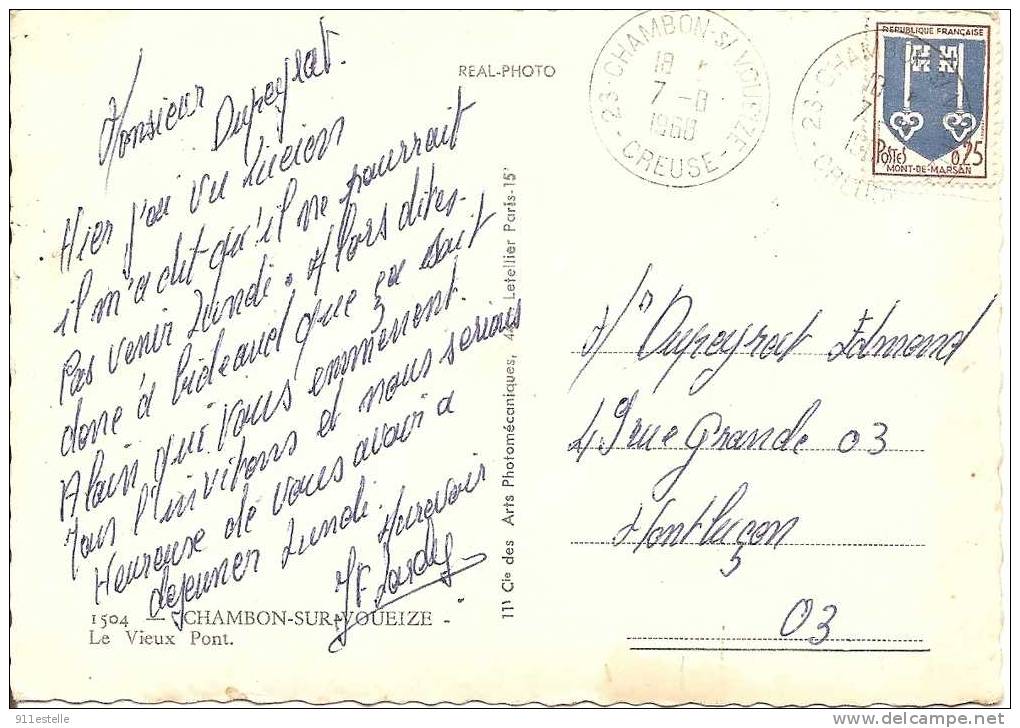 Monsieur
Dupeyrat.
Hier j'ai vu Lucien
il m'a dit qu'il ne pourrait
Pas venir Lundi. Alors dites-
donc à bideaud que ça soit
Alain qui vous emmenent.
Nous l'invitons et nous serions
Heureuse de vous avoir a
dejeuner Lundi.
Aurevoir
1504 — CHAMBON-SUR-VOUEIZE -
Le Vieux Pont.
REAL-PHOTO
11, Cie des Arts Photomécaniques, Letellier Paris-15e
23-CHAMBON-S/VOUEIZE
18
7-8
1968
-CREUSE-
23-CHAMBON
18
7
-CREUSE
REPUBLIQUE FRANÇAISE
POSTES 0,25
MONT-DE-MARSAN
Mr Dupeyrat Edmond
49 rue Grande 03
Montluçon
03
911estelle
http://www.delcampe.net